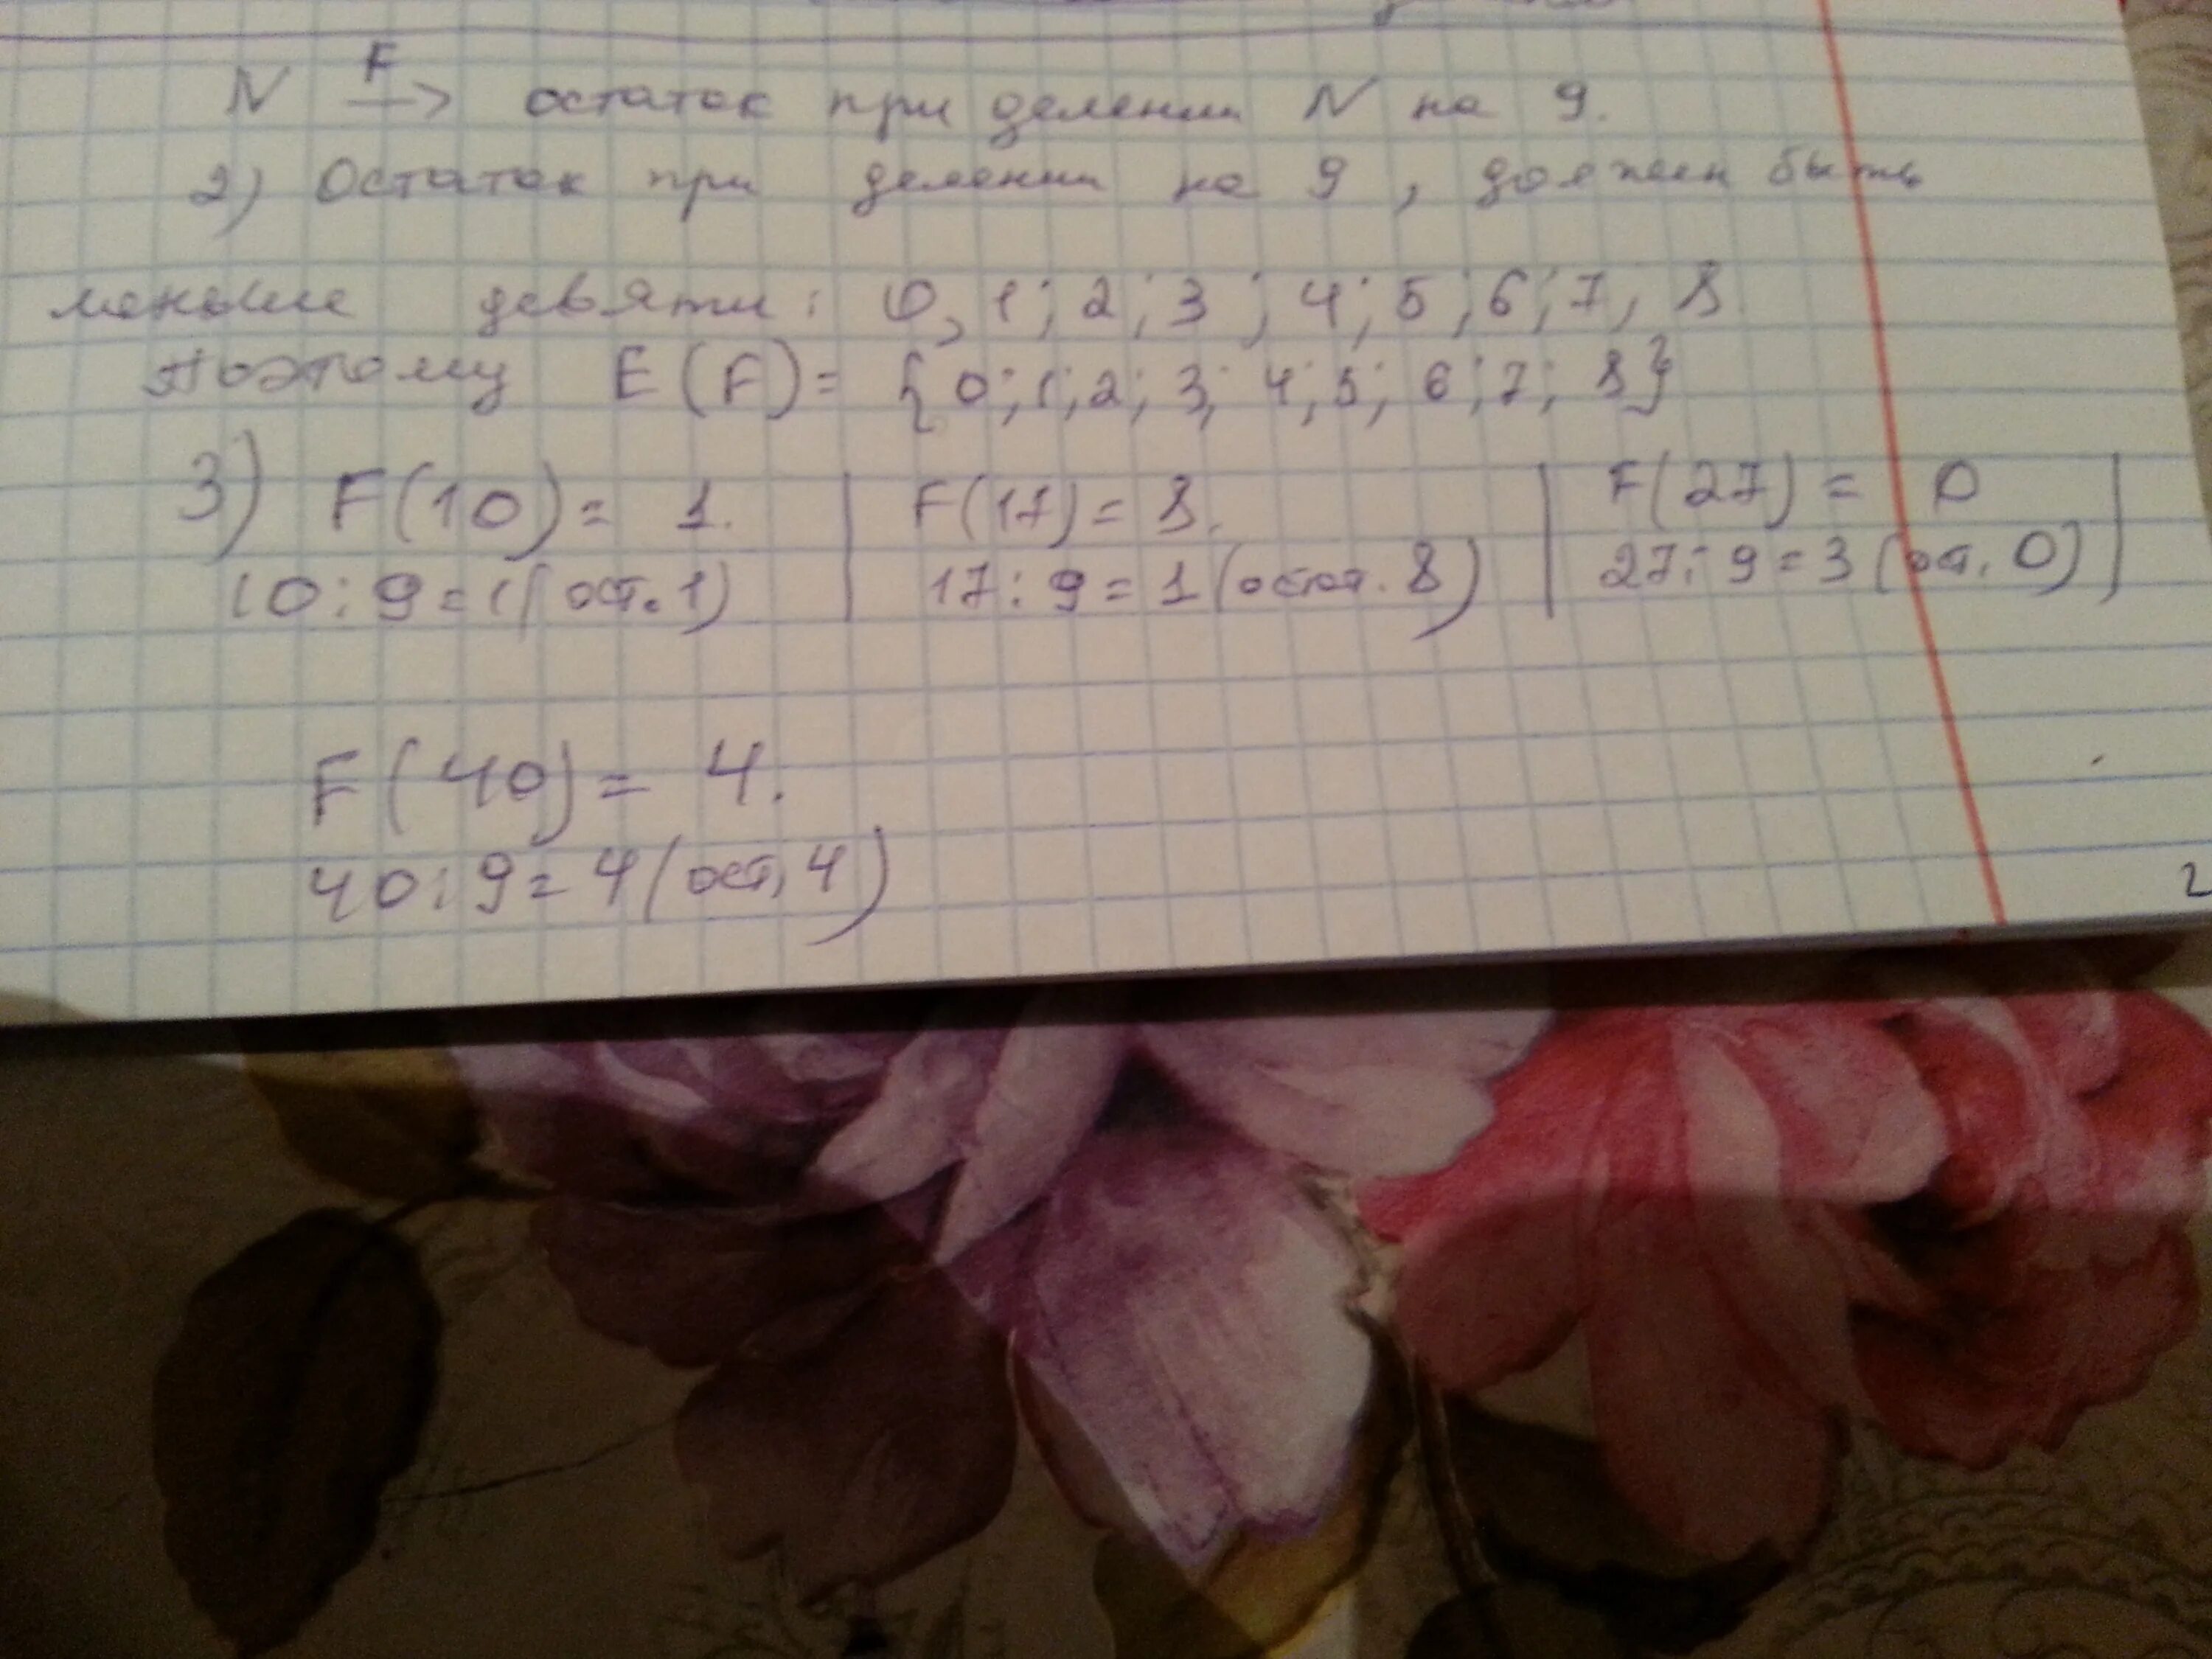 F
N —> остаток при делении N на 9.
2) Остаток при делении на 9, должен быть
меньше девяти: 0, 1; 2; 3; 4; 5; 6; 7, 8
Поэтому E(F)= {0; 1; 2; 3; 4; 5; 6; 7; 8}
3) F(10)= 1. | F(17)= 8. | F(27)= 0 |
10:9=1(ост.1) | 17:9=1(остат. 8) | 27:9=3(ост. 0) |
F(40)= 4.
40:9=4(ост, 4)
2